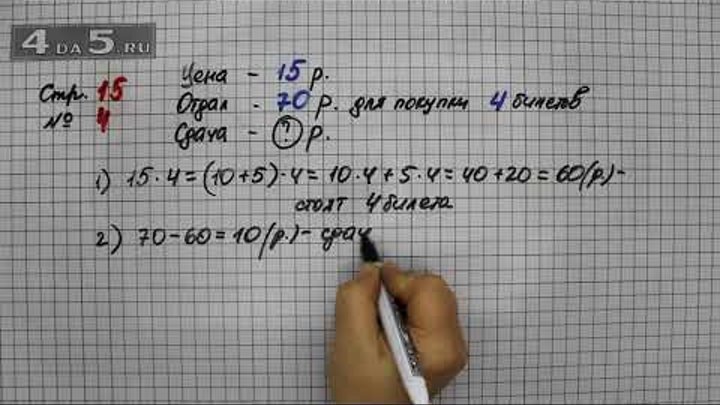 4 DA 5.RU
Стр. 15
№ 4
Цена - 15 р.
Отдал - 70 р. для покупки 4 билетов
Сдача - ? р.
1) 15 · 4 = (10 + 5) · 4 = 10 · 4 + 5 · 4 = 40 + 20 = 60 (р.) -
стоят 4 билета
2) 70 - 60 = 10 (р.) - сдач